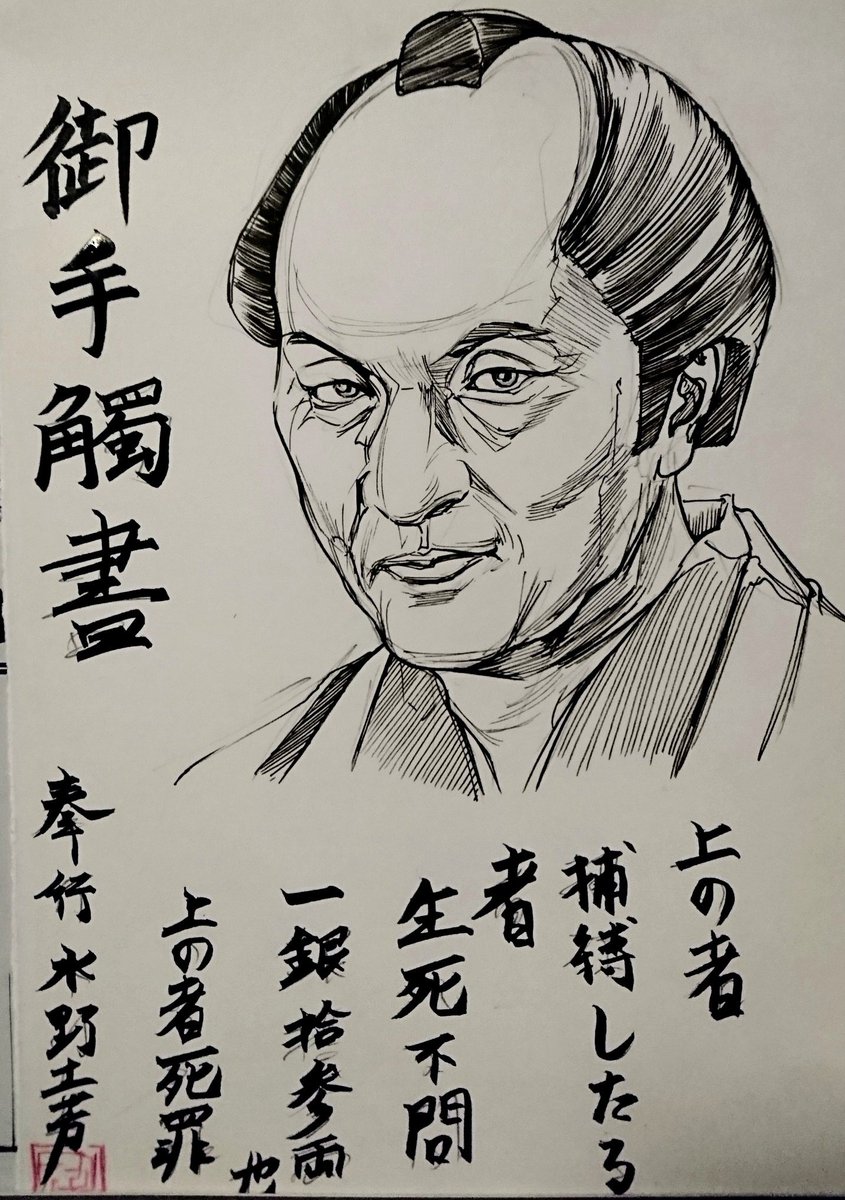 御手觸書
上の者
捕縛したる
者
生死不問
一銀拾参両
也
上の者死罪
奉行水野土芳